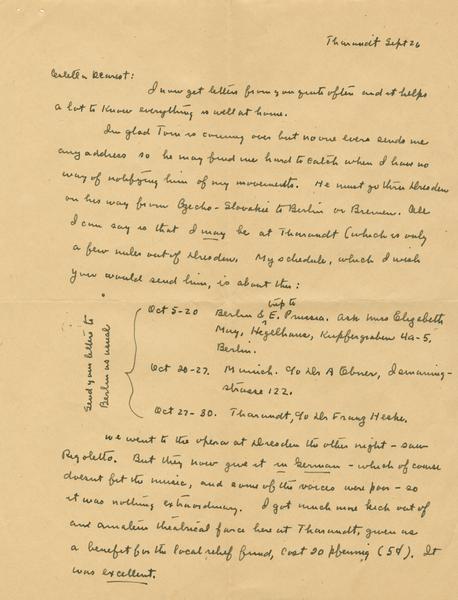 Tharandt Sept 26
Estella Dearest:
I now get letters from you quite often and it helps
a lot to know everything is well at home.
I'm glad Tom is coming over but no one ever sends me
any address so he may find me hard to catch when I have no
way of notifying him of my movements. He must go thru Dresden
on his way from Czecho-Slovakia to Berlin or Bremen. All
I can say is that I may be at Tharandt (which is only
a few miles out of Dresden. My schedule, which I wish
you would send him, is about this:
Send your letters to
Berlin as usual
Oct 5-20 Berlin & trip to E. Prussia. Ask Miss Elizabeth
May, Hegelhaus, Kupfergraben 4a-5,
Berlin.
Oct 20-27. Munich. c/o Dr A Ebner,
strasse 122.
Oct 27-30. Tharandt, c/o Dr Franz Heske.
We went to the opera at Dresden the other night - saw
Rigoletto. But they now give it in German - which of course
doesnt fit the music, and some of the voices were poor - so
it was nothing extraordinary. I got much more kick out of
and amateur theatrical farce here at Tharandt, given as
a benefit for the local relief fund, cost 20 pfennig (5¢). It
was excellent.